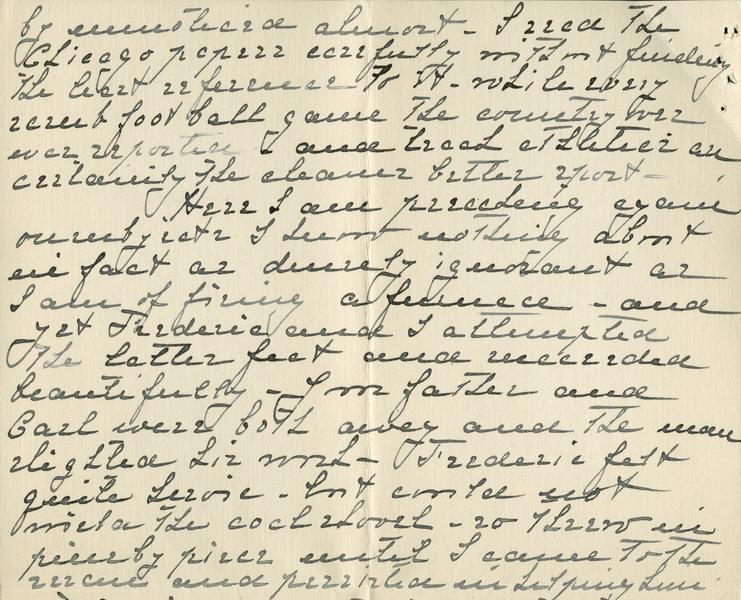 by unnoticed almost - I read the
Chicago papers carefully without finding
the least reference to it - while every
scrub foot ball game the country over
was reported - and track athletics are
certainly the cleaner better sport -
Here I am preaching again
on subjects I know nothing about
in fact as densely ignorant as
I am of firing a furnace - and
yet Frederic and I attempted
the latter feat and succeeded
beautifully - Your father and
Carl were both away and the man
slighted his work - Frederic felt
quite heroic - but could not
wield the coal shovel - so threw in
piece by piece until I came to the
rescue and persisted in helping him